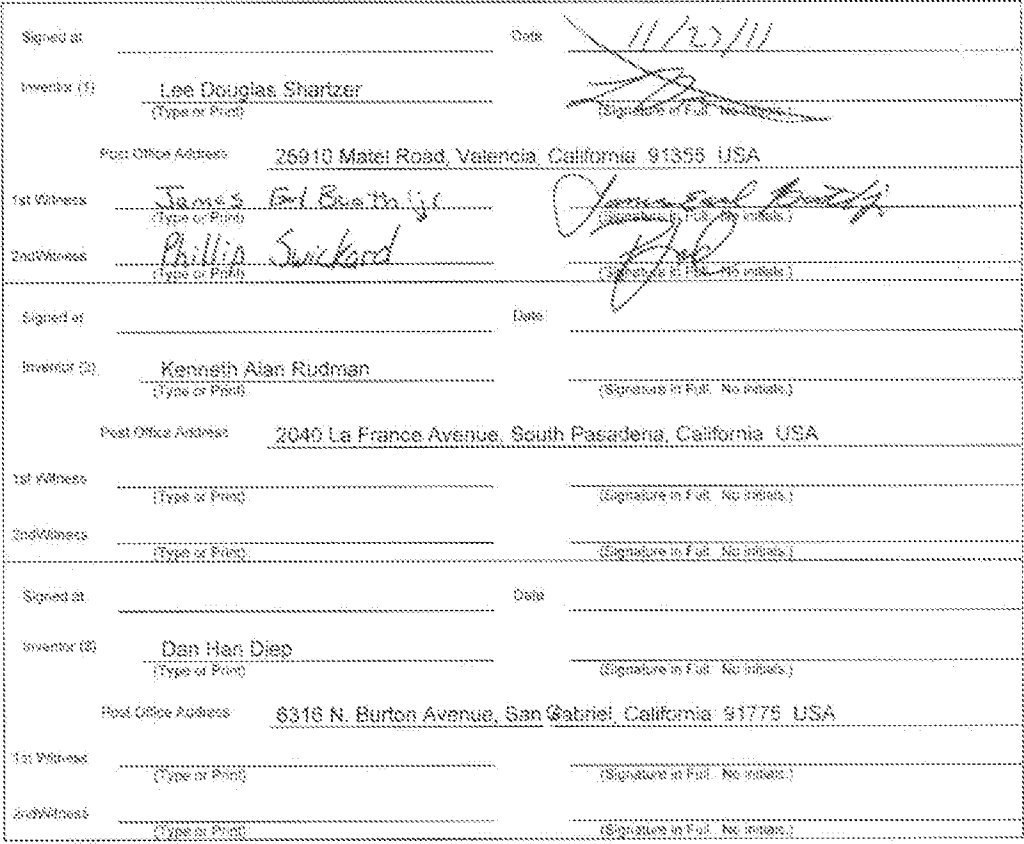 Signed at Date 11/23/11
Inventor (1) Lee Douglas Shartzer
(Type or Print) (Signature in Full. No initials.)
Post Office Address 25910 Matel Road, Valencia, California 91355 USA
1st Witness James Earl
(Type or Print) (Signature in Full. No initials.)
2ndWitness Phillip Swickard
(Type or Print) (Signature in Full. No initials.)
Signed at Date
Inventor (2) Kenneth Alan Rudman
(Type or Print) (Signature in Full. No initials.)
Post Office Address 2040 La France Avenue, South Pasadena, California USA
1st Witness
(Type or Print) (Signature in Full. No initials.)
2ndWitness
(Type or Print) (Signature in Full. No initials.)
Signed at Date
Inventor (3) Dan Han Diep
(Type or Print) (Signature in Full. No initials.)
Post Office Address 6316 N. Burton Avenue, San Gabriel, California 91775 USA
1st Witness
(Type or Print) (Signature in Full. No initials.)
2ndWitness
(Type or Print) (Signature in Full. No initials.)